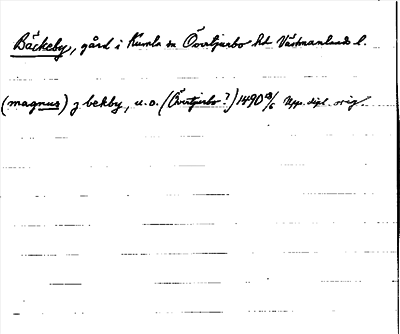 Bäckeby, gård i Kumla sn Övertjurbo hd Västmanlands l.
(magnus) j bekby, u.o. (Övertjurbo?) 1490 3/6 Upps. dipl. orig.